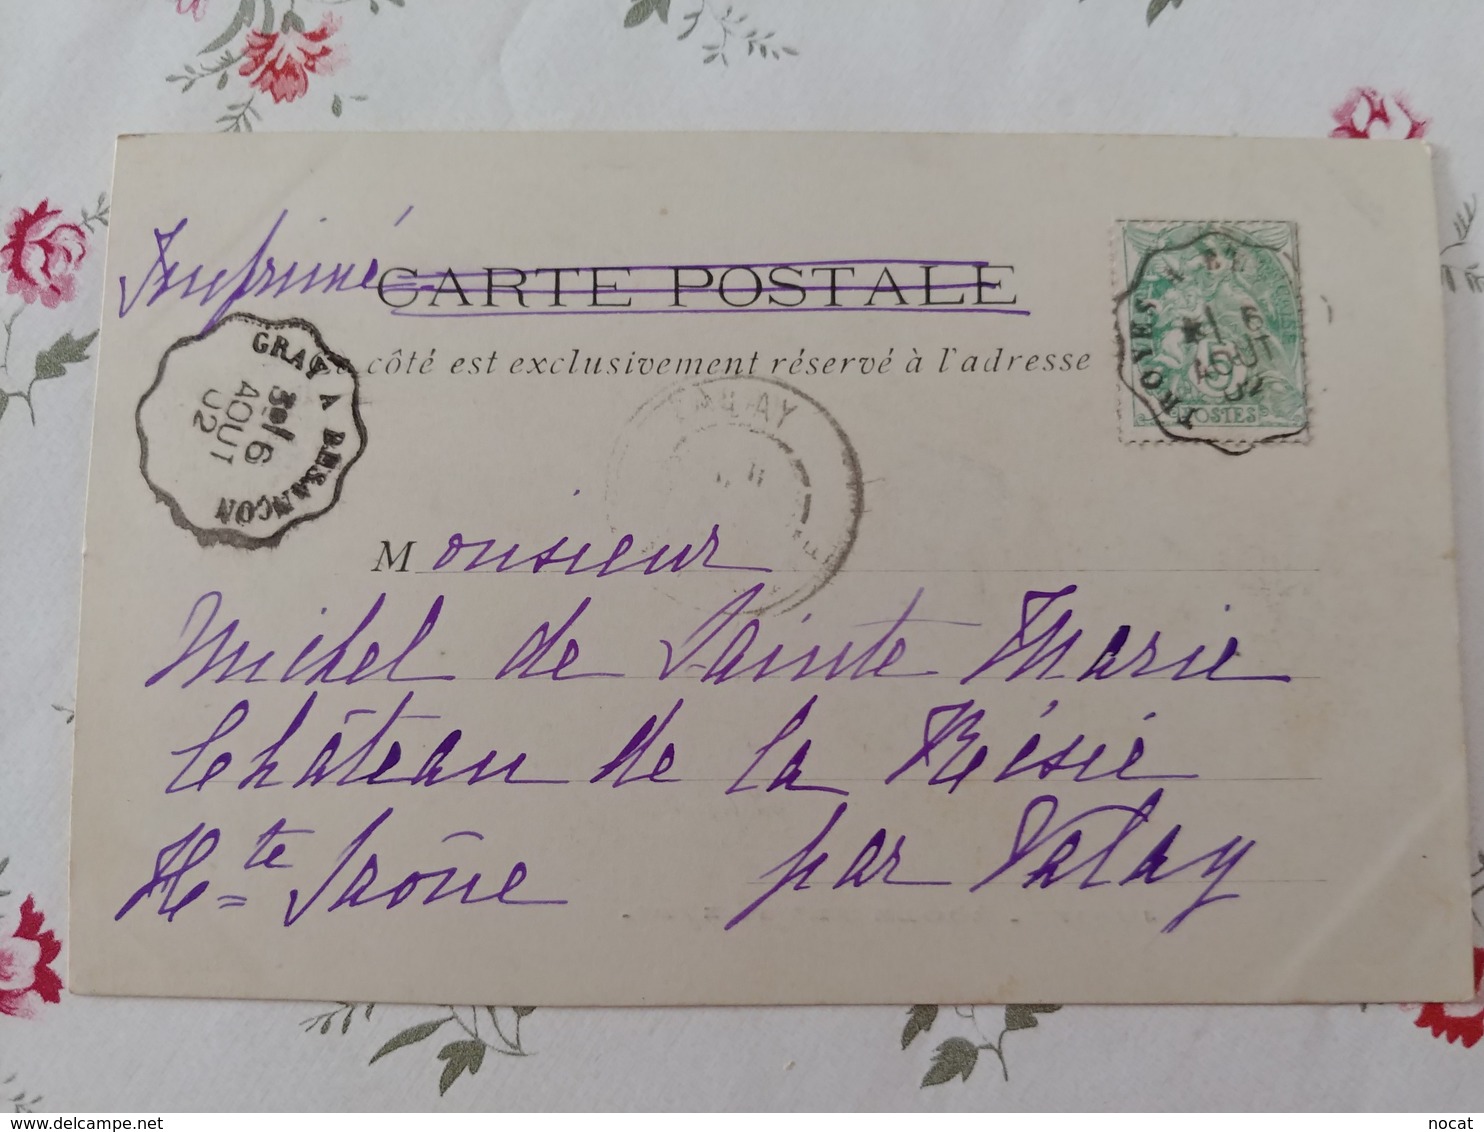 Imprimé
CARTE POSTALE
côté est exclusivement réservé à l'adresse
GRAY A BESANÇON
6
AOUT
02
TROYES A
6
AOUT
02
5
POSTES
VALAY
Monsieur
Michel de Sainte Marie
Château de la Résie
Hte Saône par Valay
nocat